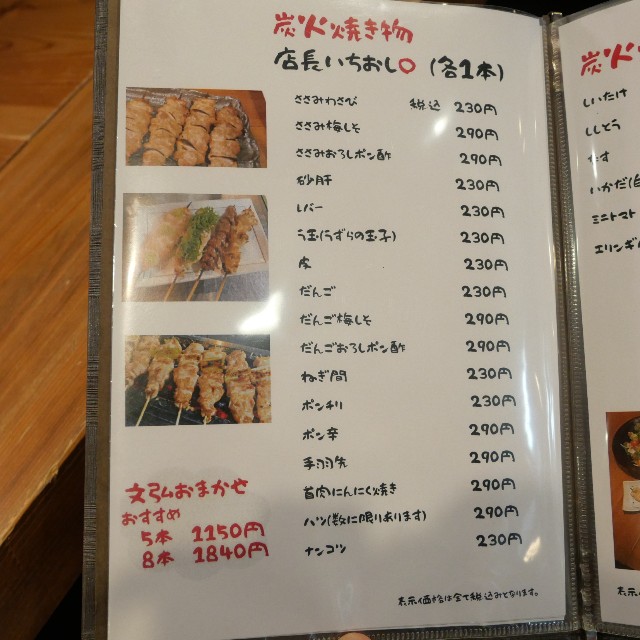 炭火焼き物
店長いちおし○ (各1本)
ささみわさび 税込 230円
ささみ梅しそ 290円
ささみおろしポン酢 290円
砂肝 230円
レバー 230円
う玉(うずらの玉子) 230円
皮 230円
だんご 230円
だんご梅しそ 290円
だんごおろしポン酢 290円
ねぎ間 230円
ボンチリ 230円
ボン辛 290円
手羽先 290円
首肉にんにく焼き 290円
ハツ(数に限りあります) 290円
ナンコツ 230円
文弘おまかせ
おすすめ
5本 1150円
8本 1840円
表示価格は全て税込みとなります。
炭火
しいたけ
ししとう
なす
いかだ(白
ミニトマト
エリンギ
表示